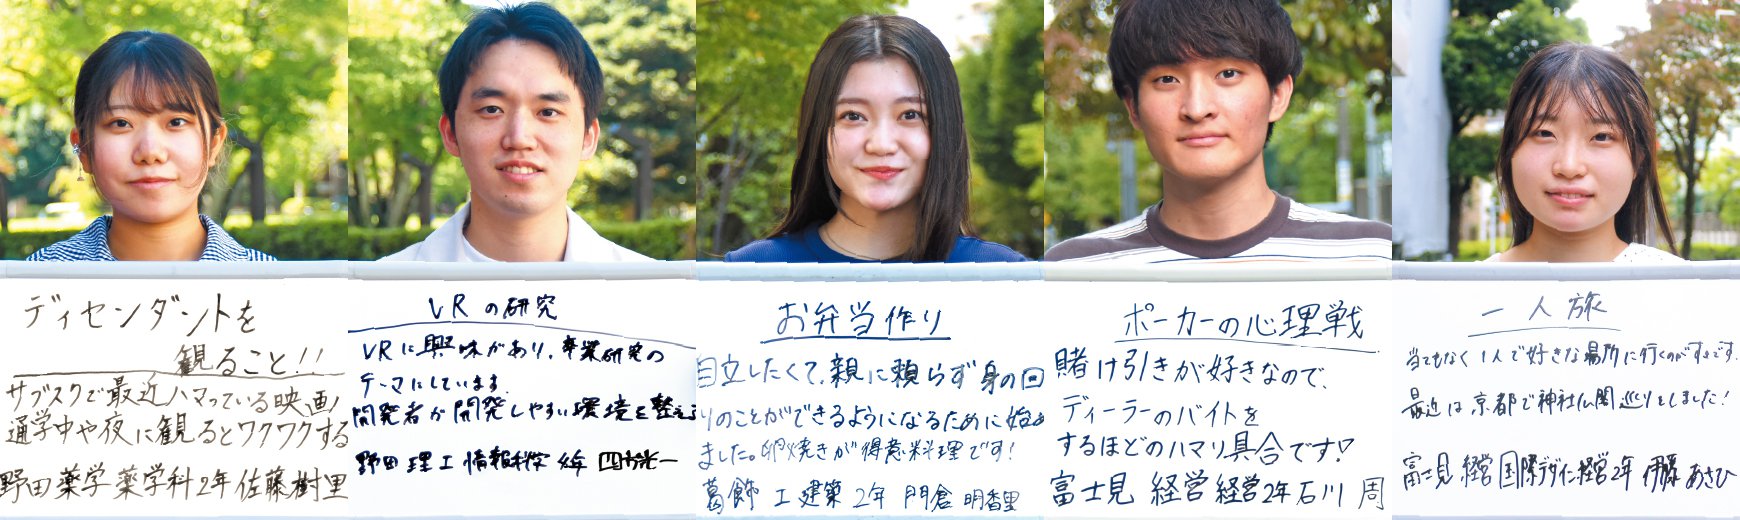 ディセンダントを
観ること!!
サブスクで最近ハマっている映画!
通学中や夜に観るとワクワクする
野田 薬学 薬学科 2年 佐藤樹里
VRの研究
VRに興味があり、卒業研究の
テーマにしています。
開発者が開発しやすい環境を整え
野田 理工 情報科学 4年
お弁当作り
自立したくて、親に頼らず身の回
りのことができるようになるために始め
ました。卵焼きが得意料理です!
葛飾 工 建築 2年 門倉 明香里
ポーカーの心理戦
賭け引きが好きなので、
ディーラーのバイトを
するほどのハマり具合です!
富士見 経営 経営2年 石川 周
一人旅
当てもなく1人で好きな場所に行くのがすきです。
最近は京都で神社仏閣巡りをしました!
富士見 経営 国際デザイン経営2年 伊藤 あさひ